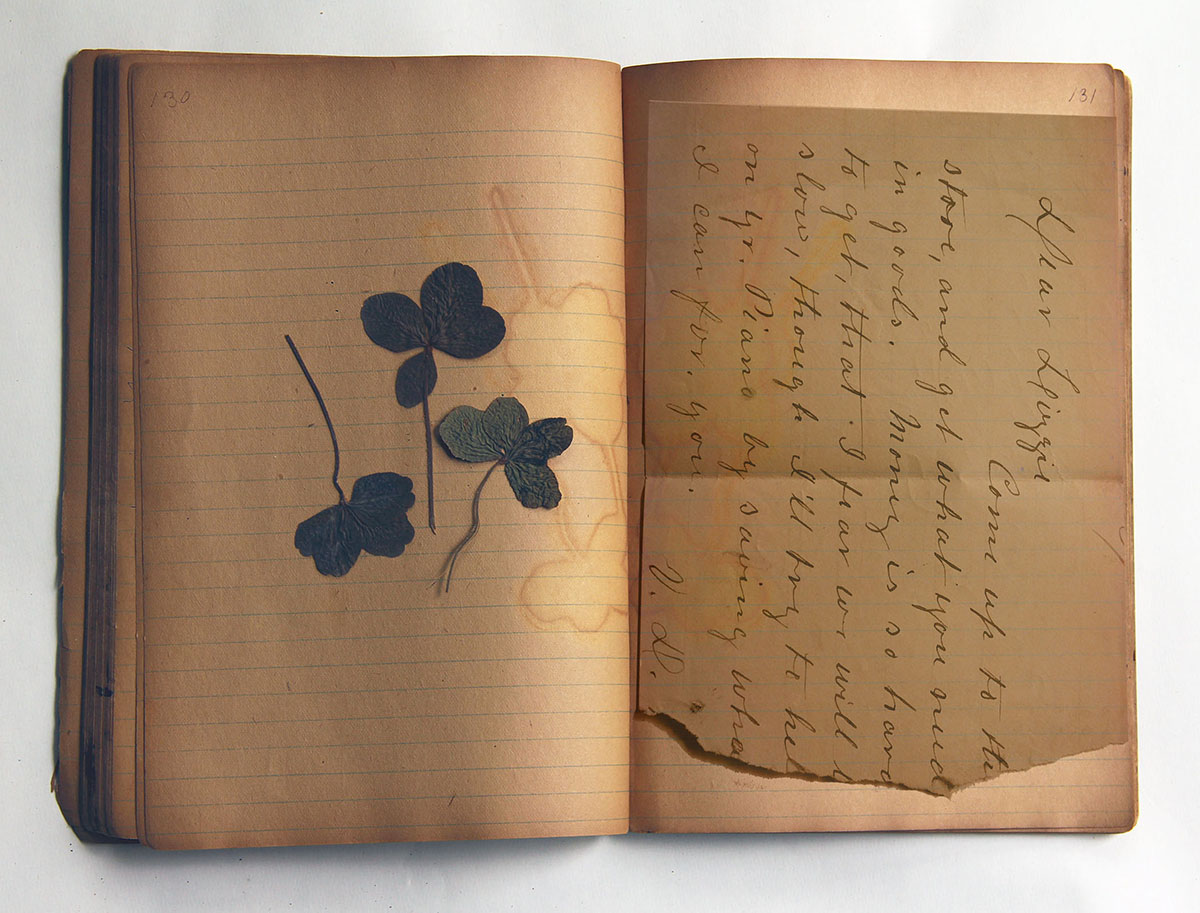 130
131
Dear Lizzie
Come up to the
store, and get what you need
in goods. Money is so hard
to get, that I fear we will
slow, though I'll try to hel
on yr. Piano by saving wha
I can for you.
V. D.